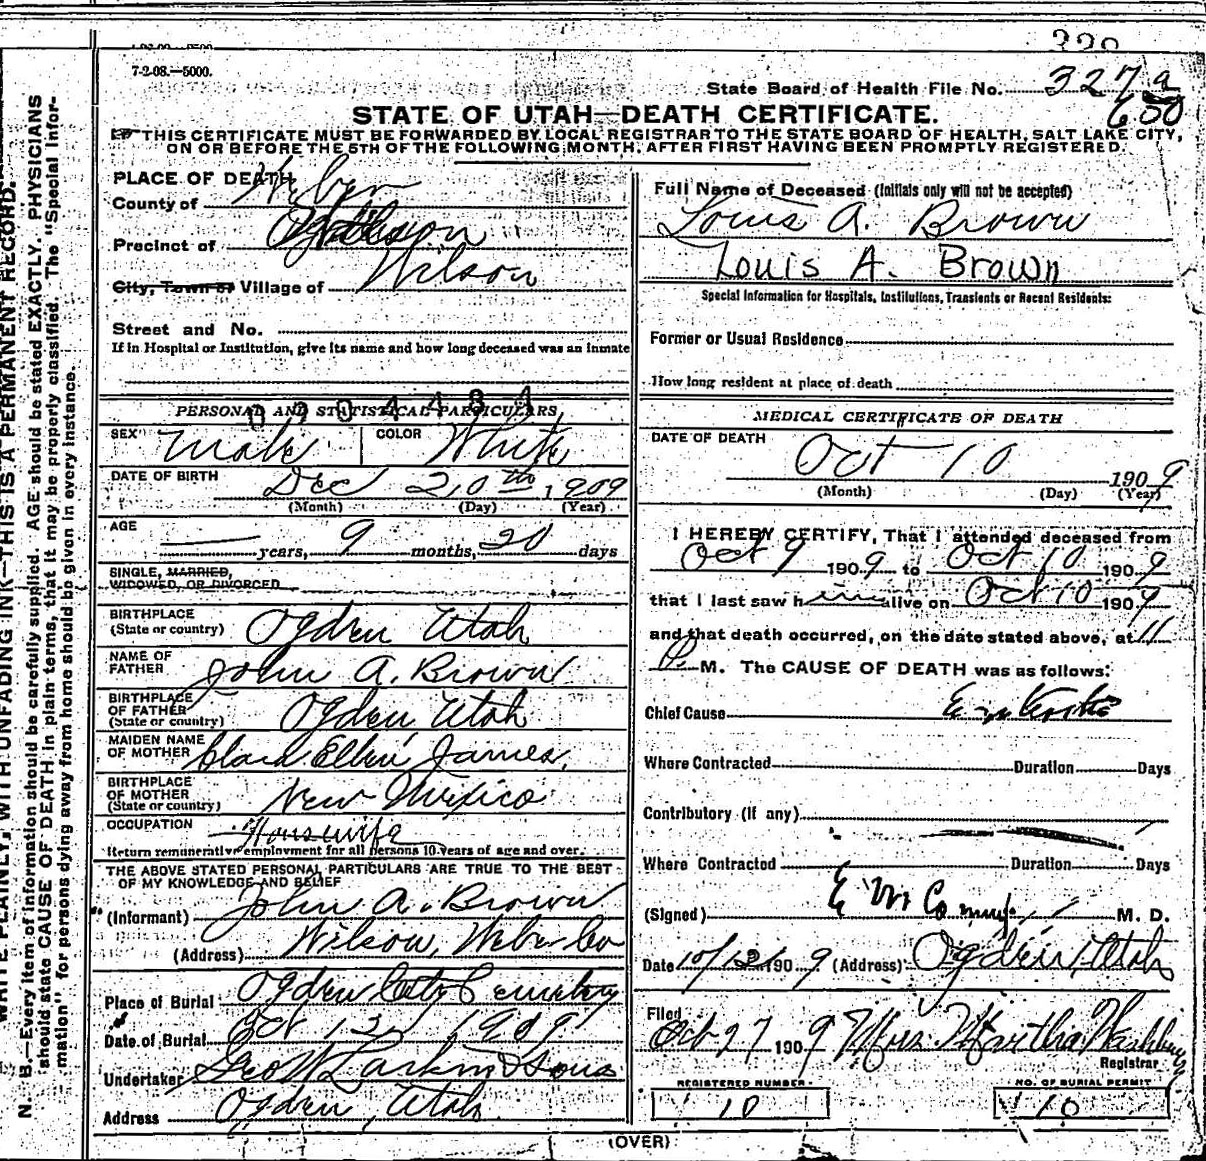 7-2-08.—5000.
State Board of Health File No. 327 a
650
STATE OF UTAH—DEATH CERTIFICATE.
THIS CERTIFICATE MUST BE FORWARDED BY LOCAL REGISTRAR TO THE STATE BOARD OF HEALTH, SALT LAKE CITY,
ON OR BEFORE THE 5TH OF THE FOLLOWING MONTH, AFTER FIRST HAVING BEEN PROMPTLY REGISTERED.
N. B.—Every item of information should be carefully supplied. AGE should be stated EXACTLY. PHYSICIANS
should state CAUSE OF DEATH in plain terms, that it may be properly classified. The "Special Infor-
mation" for persons dying away from home should be given in every instance.
WRITE PLAINLY, WITH UNFADING INK—THIS IS A PERMANENT RECORD.
PLACE OF DEATH
County of Weber
Precinct of Wilson
City, Town or Village of Wilson
Street and No.
If in Hospital or Institution, give its name and how long deceased was an inmate
0904484
PERSONAL AND STATISTICAL PARTICULARS
SEX Male COLOR White
DATE OF BIRTH Dec 20th 1909
(Month) (Day) (Year)
AGE — years, 9 months, 20 days
SINGLE, MARRIED,
WIDOWED, OR DIVORCED
BIRTHPLACE
(State or country) Ogden Utah
NAME OF
FATHER John A. Brown
BIRTHPLACE
OF FATHER
(State or country) Ogden Utah
MAIDEN NAME
OF MOTHER Clara Ellen James,
BIRTHPLACE
OF MOTHER
(State or country) New Mexico
OCCUPATION Housewife
Return remunerative employment for all persons 10 years of age and over.
THE ABOVE STATED PERSONAL PARTICULARS ARE TRUE TO THE BEST
OF MY KNOWLEDGE AND BELIEF
(Informant) John A. Brown
(Address) Wilson, Weber Co
Place of Burial Ogden City Cemetery
Date of Burial Oct 12 1909
Undertaker Geo W Larkin & Sons
Address Ogden, Utah
Full Name of Deceased (Initials only will not be accepted)
Louis A. Brown
Louis A. Brown
Special Information for Hospitals, Institutions, Transients or Recent Residents:
Former or Usual Residence
How long resident at place of death
MEDICAL CERTIFICATE OF DEATH
DATE OF DEATH
Oct 10 1909
(Month) (Day) (Year)
I HEREBY CERTIFY, That I attended deceased from
Oct 9 1909 to Oct 10 1909
that I last saw him alive on Oct 10 1909
and that death occurred, on the date stated above, at 11
P. M. The CAUSE OF DEATH was as follows:
Chief Cause
Where Contracted Duration Days
Contributory (if any)
Where Contracted Duration Days
(Signed) E M M. D.
Date 10/12 1909 (Address) Ogden, Utah
Filed
Oct 27 1909 Mrs. Martha Washburn
Registrar
REGISTERED NUMBER
10
NO. OF BURIAL PERMIT
10
(OVER)